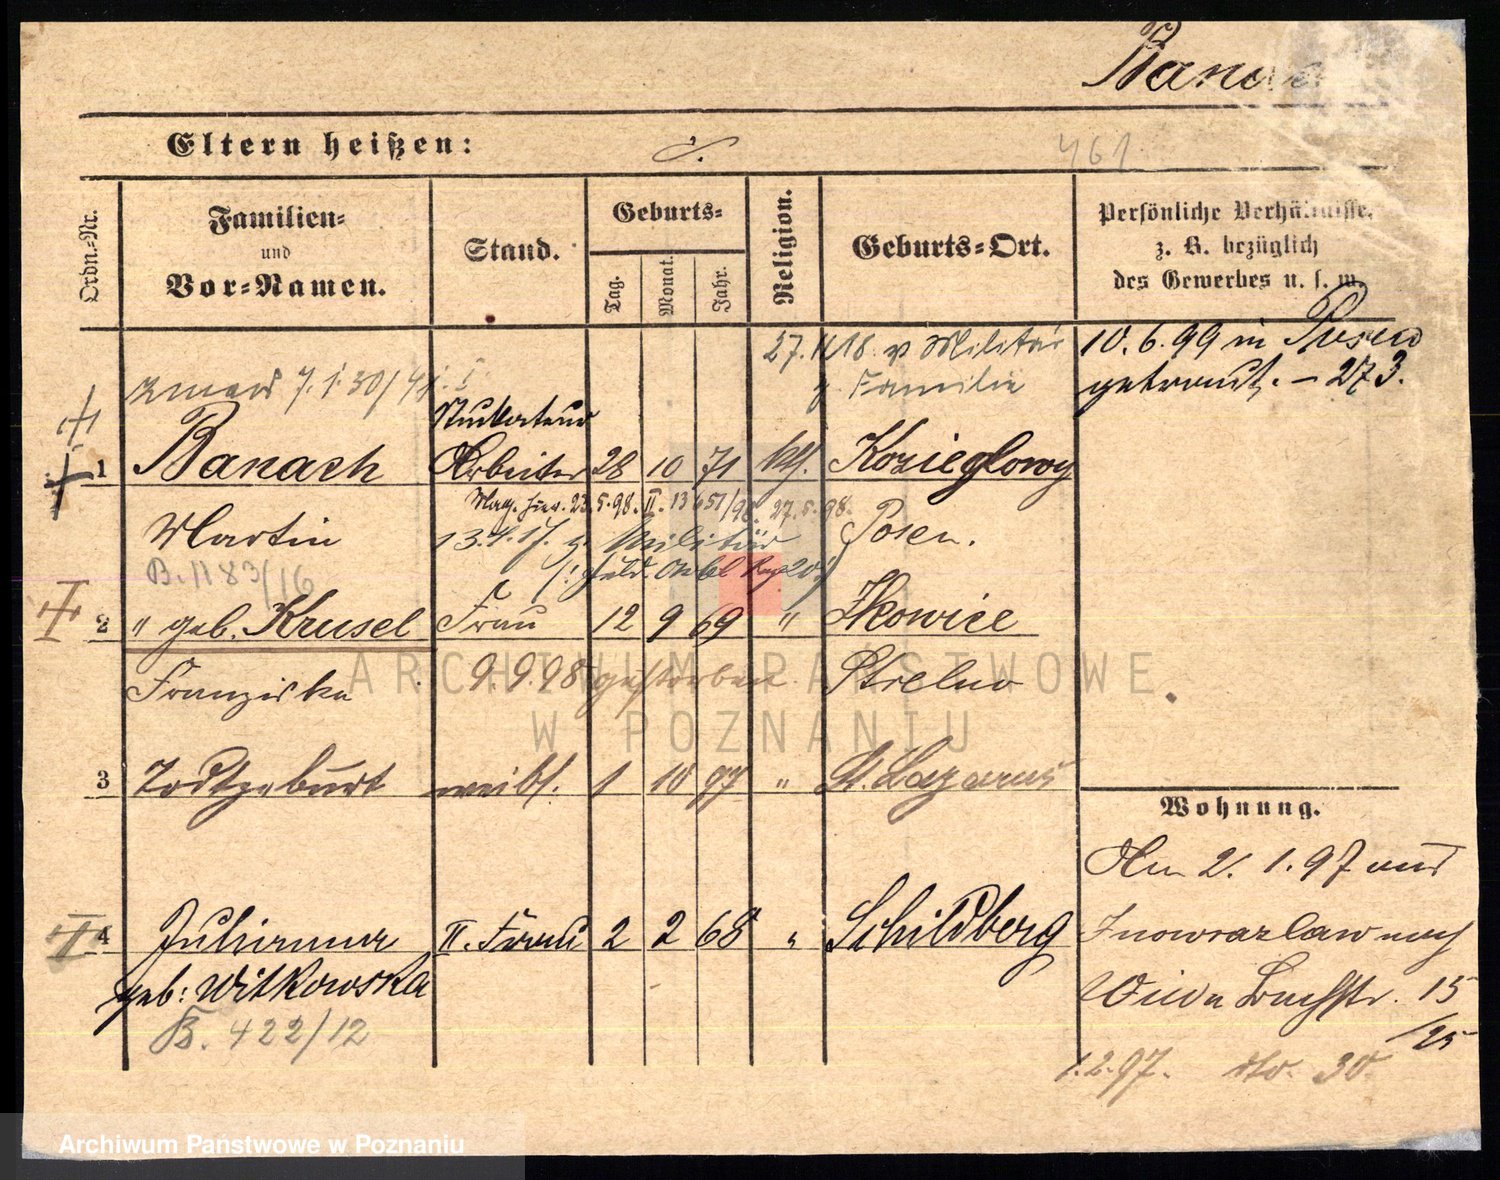 Eltern heißen:
461
Ordn.-Nr.
Familien-
und
Vor-Namen.
Stand.
Geburts-
Tag.
Monat.
Jahr.
Religion.
Geburts-Ort.
Persönliche Verhältnisse,
z. B. bezüglich
des Gewerbes u. s. w.
27. 11 18. v Militär
z. Familie
10. 6. 99 in Posen
getraut. – 273.
zmarł 7. 1. 30/41
1 Banach Arbeiter 28 10 71 kth. Koziegłowy
23. 5. 98. II. 13651/98. 27. 5. 98.
Martin 13. 4. 17. z. Militär Posen.
B. 1183/16
2 " geb. Krusel Frau 12 9 69 "
Franziska 9. 9. 98 gestorben Strelno
3 Todtgeburt weibl. 1 10 97 " St. Lazarus
Wohnung.
2. 1. 97 aus
4 Julianna II. Frau 2 2 68 " Schildberg Inowrazlaw nach
geb: Witkowska Wilda Bachstr. 15
/25
B. 422/12
1. 2. 97. dto. 30.
ARCHIWUM PAŃSTWOWE
W POZNANIU
Archiwum Państwowe w Poznaniu